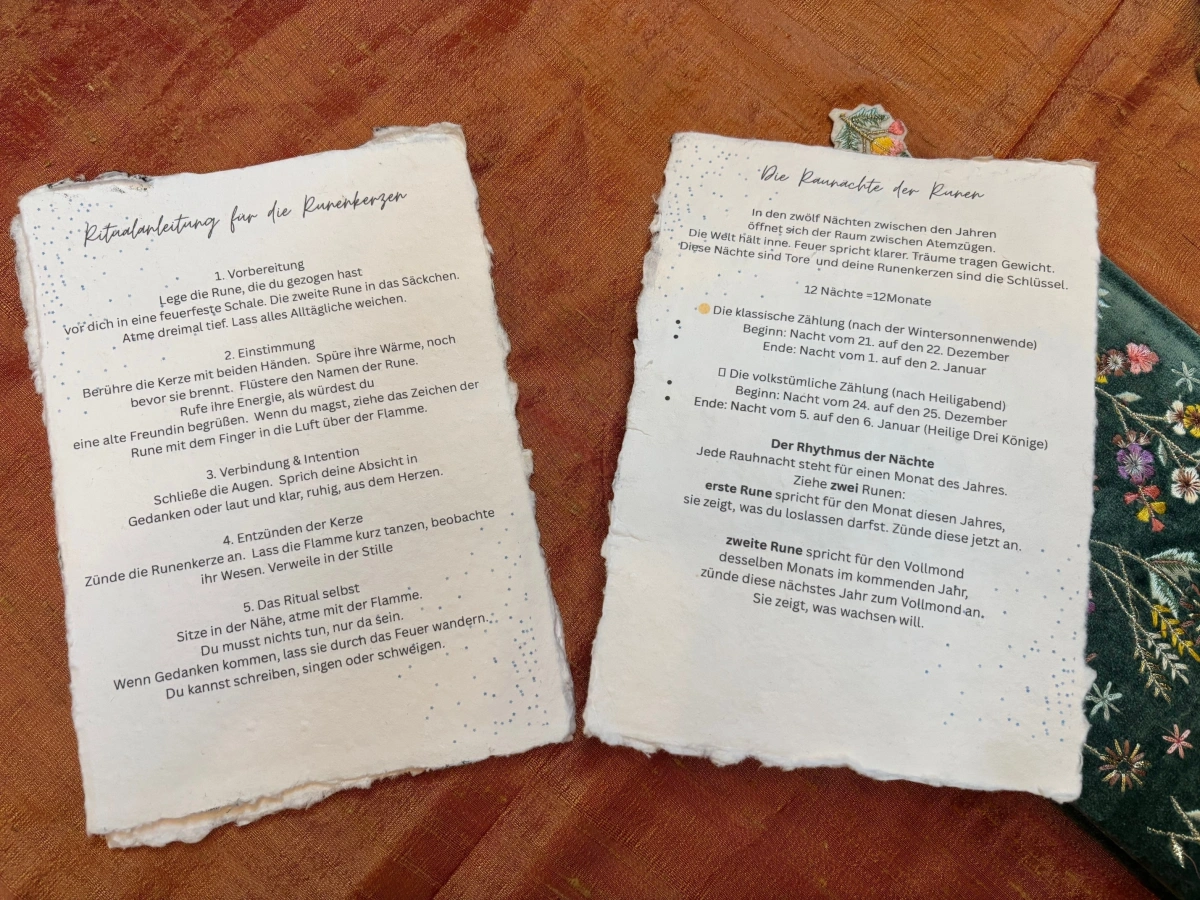 Ritualanleitung für die Runenkerzen
1. Vorbereitung
Lege die Rune, die du gezogen hast
vor dich in eine feuerfeste Schale. Die zweite Rune in das Säckchen.
Atme dreimal tief. Lass alles Alltägliche weichen.
2. Einstimmung
Berühre die Kerze mit beiden Händen. Spüre ihre Wärme, noch
bevor sie brennt. Flüstere den Namen der Rune.
Rufe ihre Energie, als würdest du
eine alte Freundin begrüßen. Wenn du magst, ziehe das Zeichen der
Rune mit dem Finger in die Luft über der Flamme.
3. Verbindung & Intention
Schließe die Augen. Sprich deine Absicht in
Gedanken oder laut und klar, ruhig, aus dem Herzen.
4. Entzünden der Kerze
Zünde die Runenkerze an. Lass die Flamme kurz tanzen, beobachte
ihr Wesen. Verweile in der Stille
5. Das Ritual selbst
Sitze in der Nähe, atme mit der Flamme.
Du musst nichts tun, nur da sein.
Wenn Gedanken kommen, lass sie durch das Feuer wandern.
Du kannst schreiben, singen oder schweigen.
Die Raunächte der Runen
In den zwölf Nächten zwischen den Jahren
öffnet sich der Raum zwischen Atemzügen.
Die Welt hält inne. Feuer spricht klarer. Träume tragen Gewicht.
Diese Nächte sind Tore und deine Runenkerzen sind die Schlüssel.
12 Nächte =12Monate
Die klassische Zählung (nach der Wintersonnenwende)
Beginn: Nacht vom 21. auf den 22. Dezember
Ende: Nacht vom 1. auf den 2. Januar
Die volkstümliche Zählung (nach Heiligabend)
Beginn: Nacht vom 24. auf den 25. Dezember
Ende: Nacht vom 5. auf den 6. Januar (Heilige Drei Könige)
Der Rhythmus der Nächte
Jede Rauhnacht steht für einen Monat des Jahres.
Ziehe zwei Runen:
erste Rune spricht für den Monat diesen Jahres,
sie zeigt, was du loslassen darfst. Zünde diese jetzt an.
zweite Rune spricht für den Vollmond
desselben Monats im kommenden Jahr,
zünde diese nächstes Jahr zum Vollmond an.
Sie zeigt, was wachsen will.